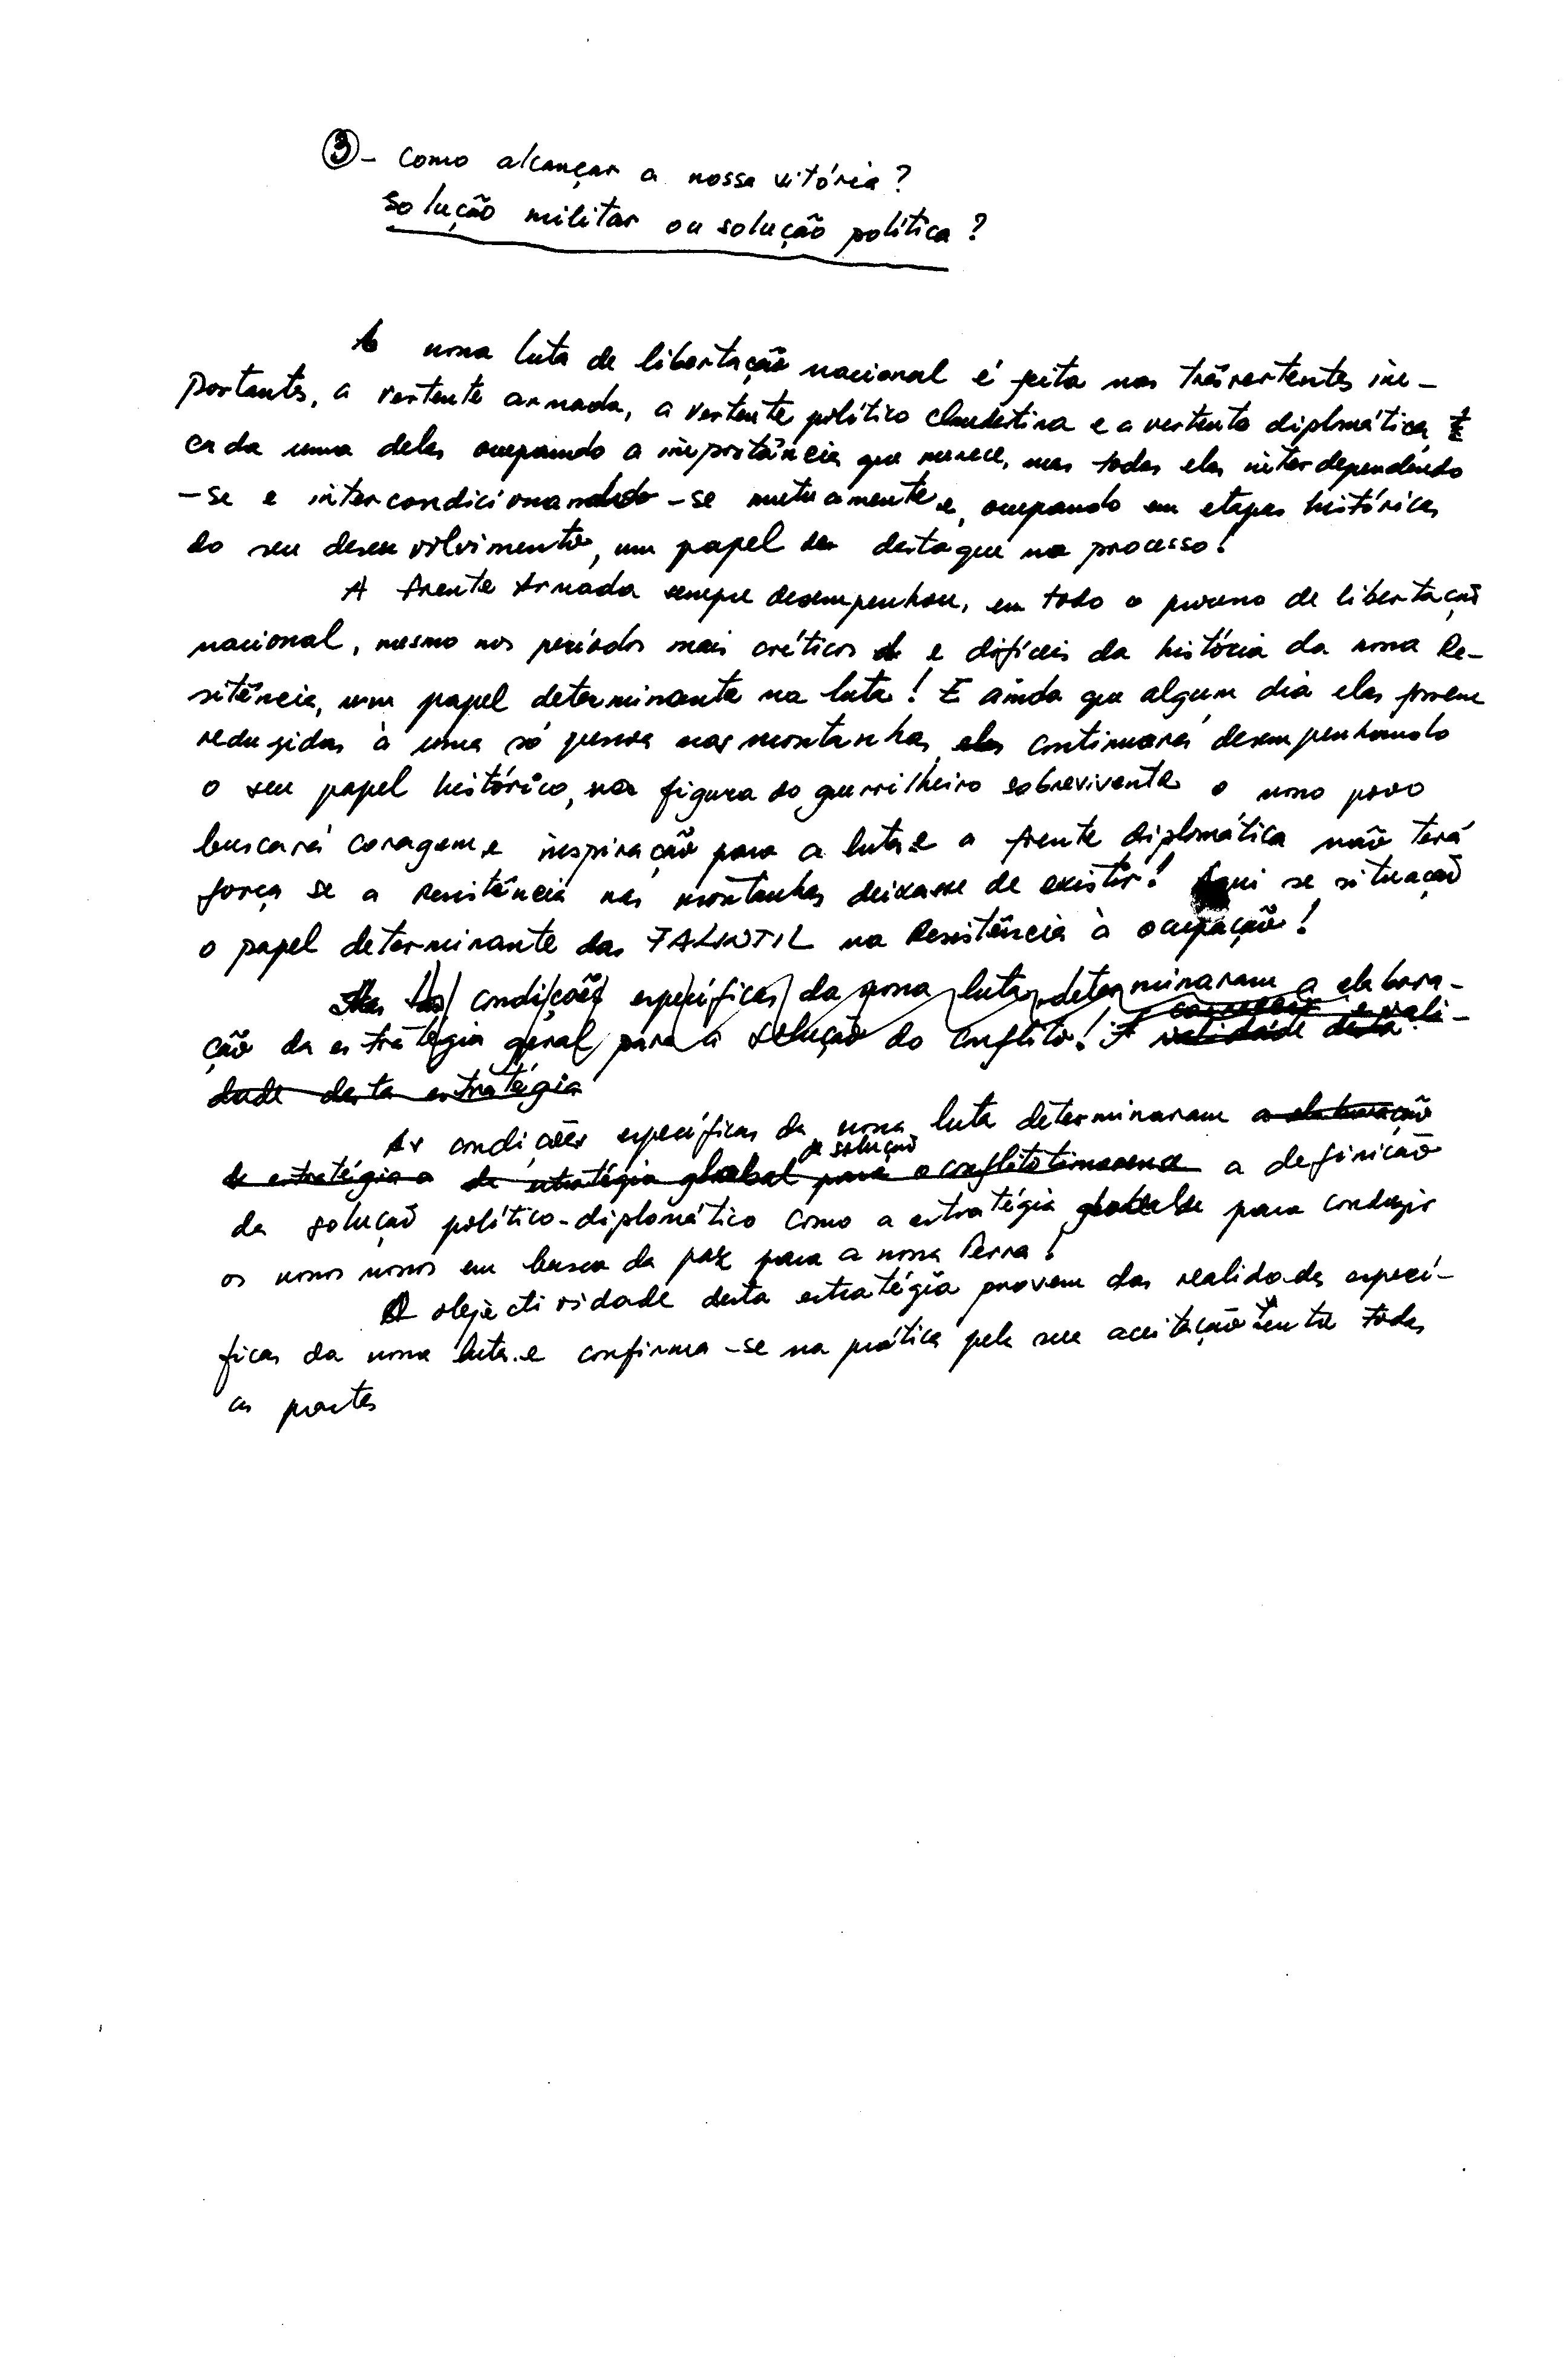 ③ - Como alcançar a nossa vitória?
Solução militar ou solução política?
A nossa luta de libertação nacional é feita nas três vertentes im-
portantes, a vertente armada, a vertente político clandestina e a vertente diplomática,
cada uma delas ocupando a importância que merece, mas todas elas interdependendo
-se e intercondicionando-se mutuamente e, ocupando em etapas históricas
do seu desenvolvimento, um papel de destaque no processo!
A Frente Armada sempre desempenhou, em todo o processo de libertação
nacional, mesmo nos períodos mais críticos e difíceis da história da nossa Re-
sitência, um papel determinante na luta! E ainda que algum dia elas fossem
reduzidas à uma só pessoa nas montanhas, elas continuará desempenhando
o seu papel histórico, na figura do guerrilheiro sobrevivente o nosso povo
buscará coragem e inspiração para a luta e a frente diplomática não terá
força se a resistência nas montanhas deixasse de existir! Aqui se situação
o papel determinante das FALINTIL na Resistência à ocupação!
As condições específicas da nossa luta, determinaram a elabora-
ção da estratégia geral para a solução do conflito! A validade desta e vali-
dade desta estratégia
As condições específicas da nossa luta determinaram a elaboração
de solução
de estratégia a de estratégia global para o conflito timorense a definição
da solução político-diplomático como a estratégia global para conduzir
os nossos nossos em busca da paz para a nossa Terra!
A objectividade desta estratégia provem das realidades especí-
ficas da nossa luta e confirma-se na prática pela sua aceitação entre todas
as partes